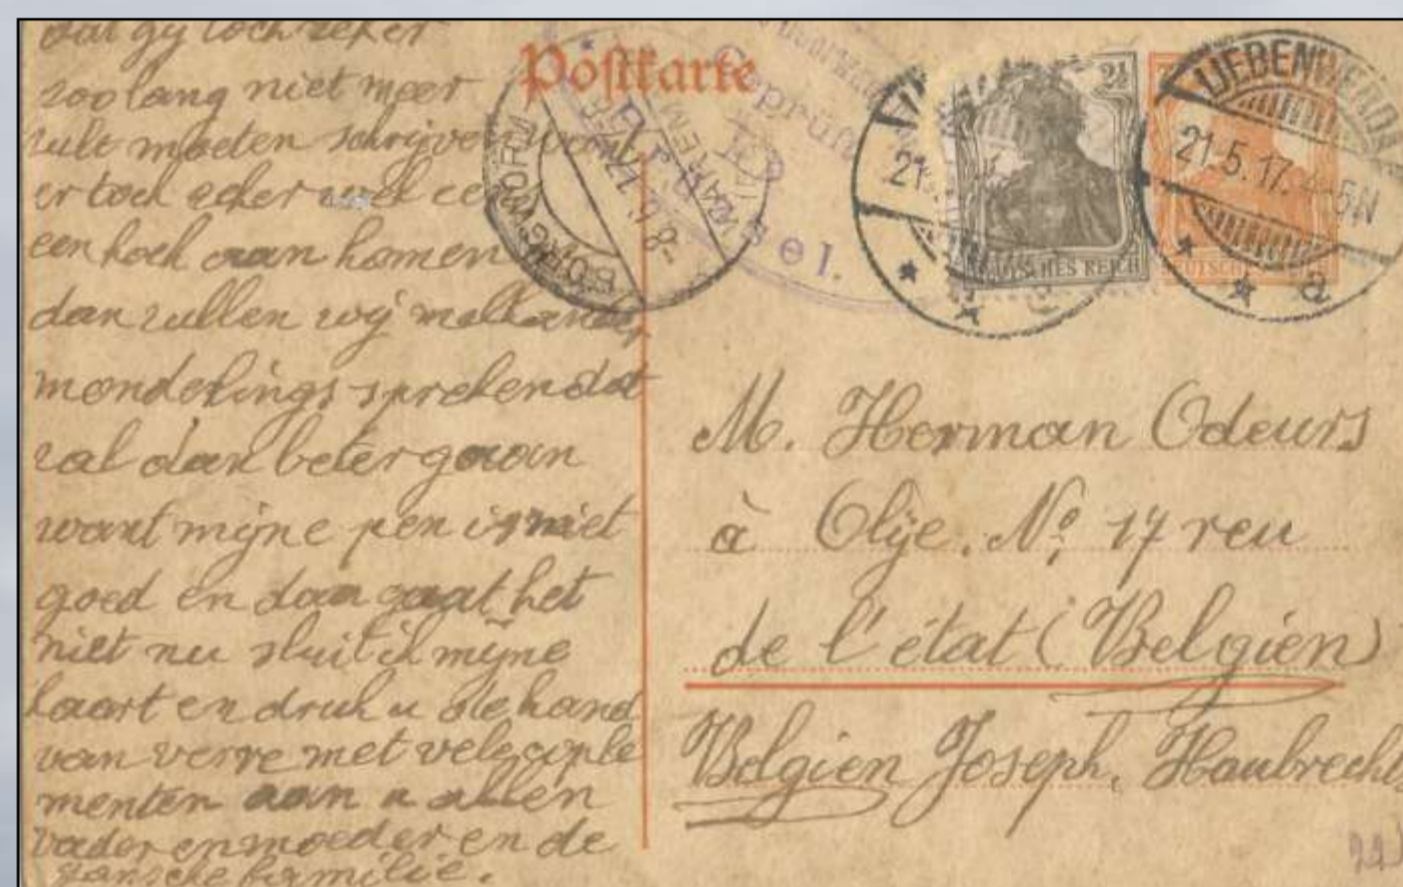 dat gy toch zeker
zoo lang niet meer
zult moeten schryven want
er toch zeker wel ee
een hoek aan komen
dan zullen wy malkander
mondelings spreken dat
zal dan beter gaan
want myne pen is niet
goed en dan gaat het
niet nu sluit ik myne
kaart en druk u de hand
van verre met vele comple
menten aan u allen
vader en moeder en de
gansche familie.
Postkarte
Geprüft
BORGWORM
WAREMME
-8.6.17
sel.
21
2½
DEUTSCHES REICH
LIEBENWERDA
21.5.17. 4-5N
* * a
M. Herman Odeurs
à Olije. No: 17 reu
de l'état (Belgien)
Belgien Joseph. Haubrechts